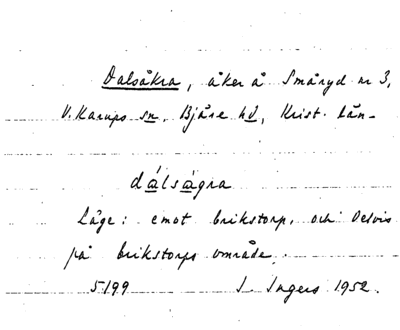 Dalsåkra, åker å Småryd nr 3,
V. Karups sn, Bjäre hd, Krist. län.
dálságra
Läge: emot brikstorp, och delvis
på brikstorps område.
5199 I. Ingers 1952.